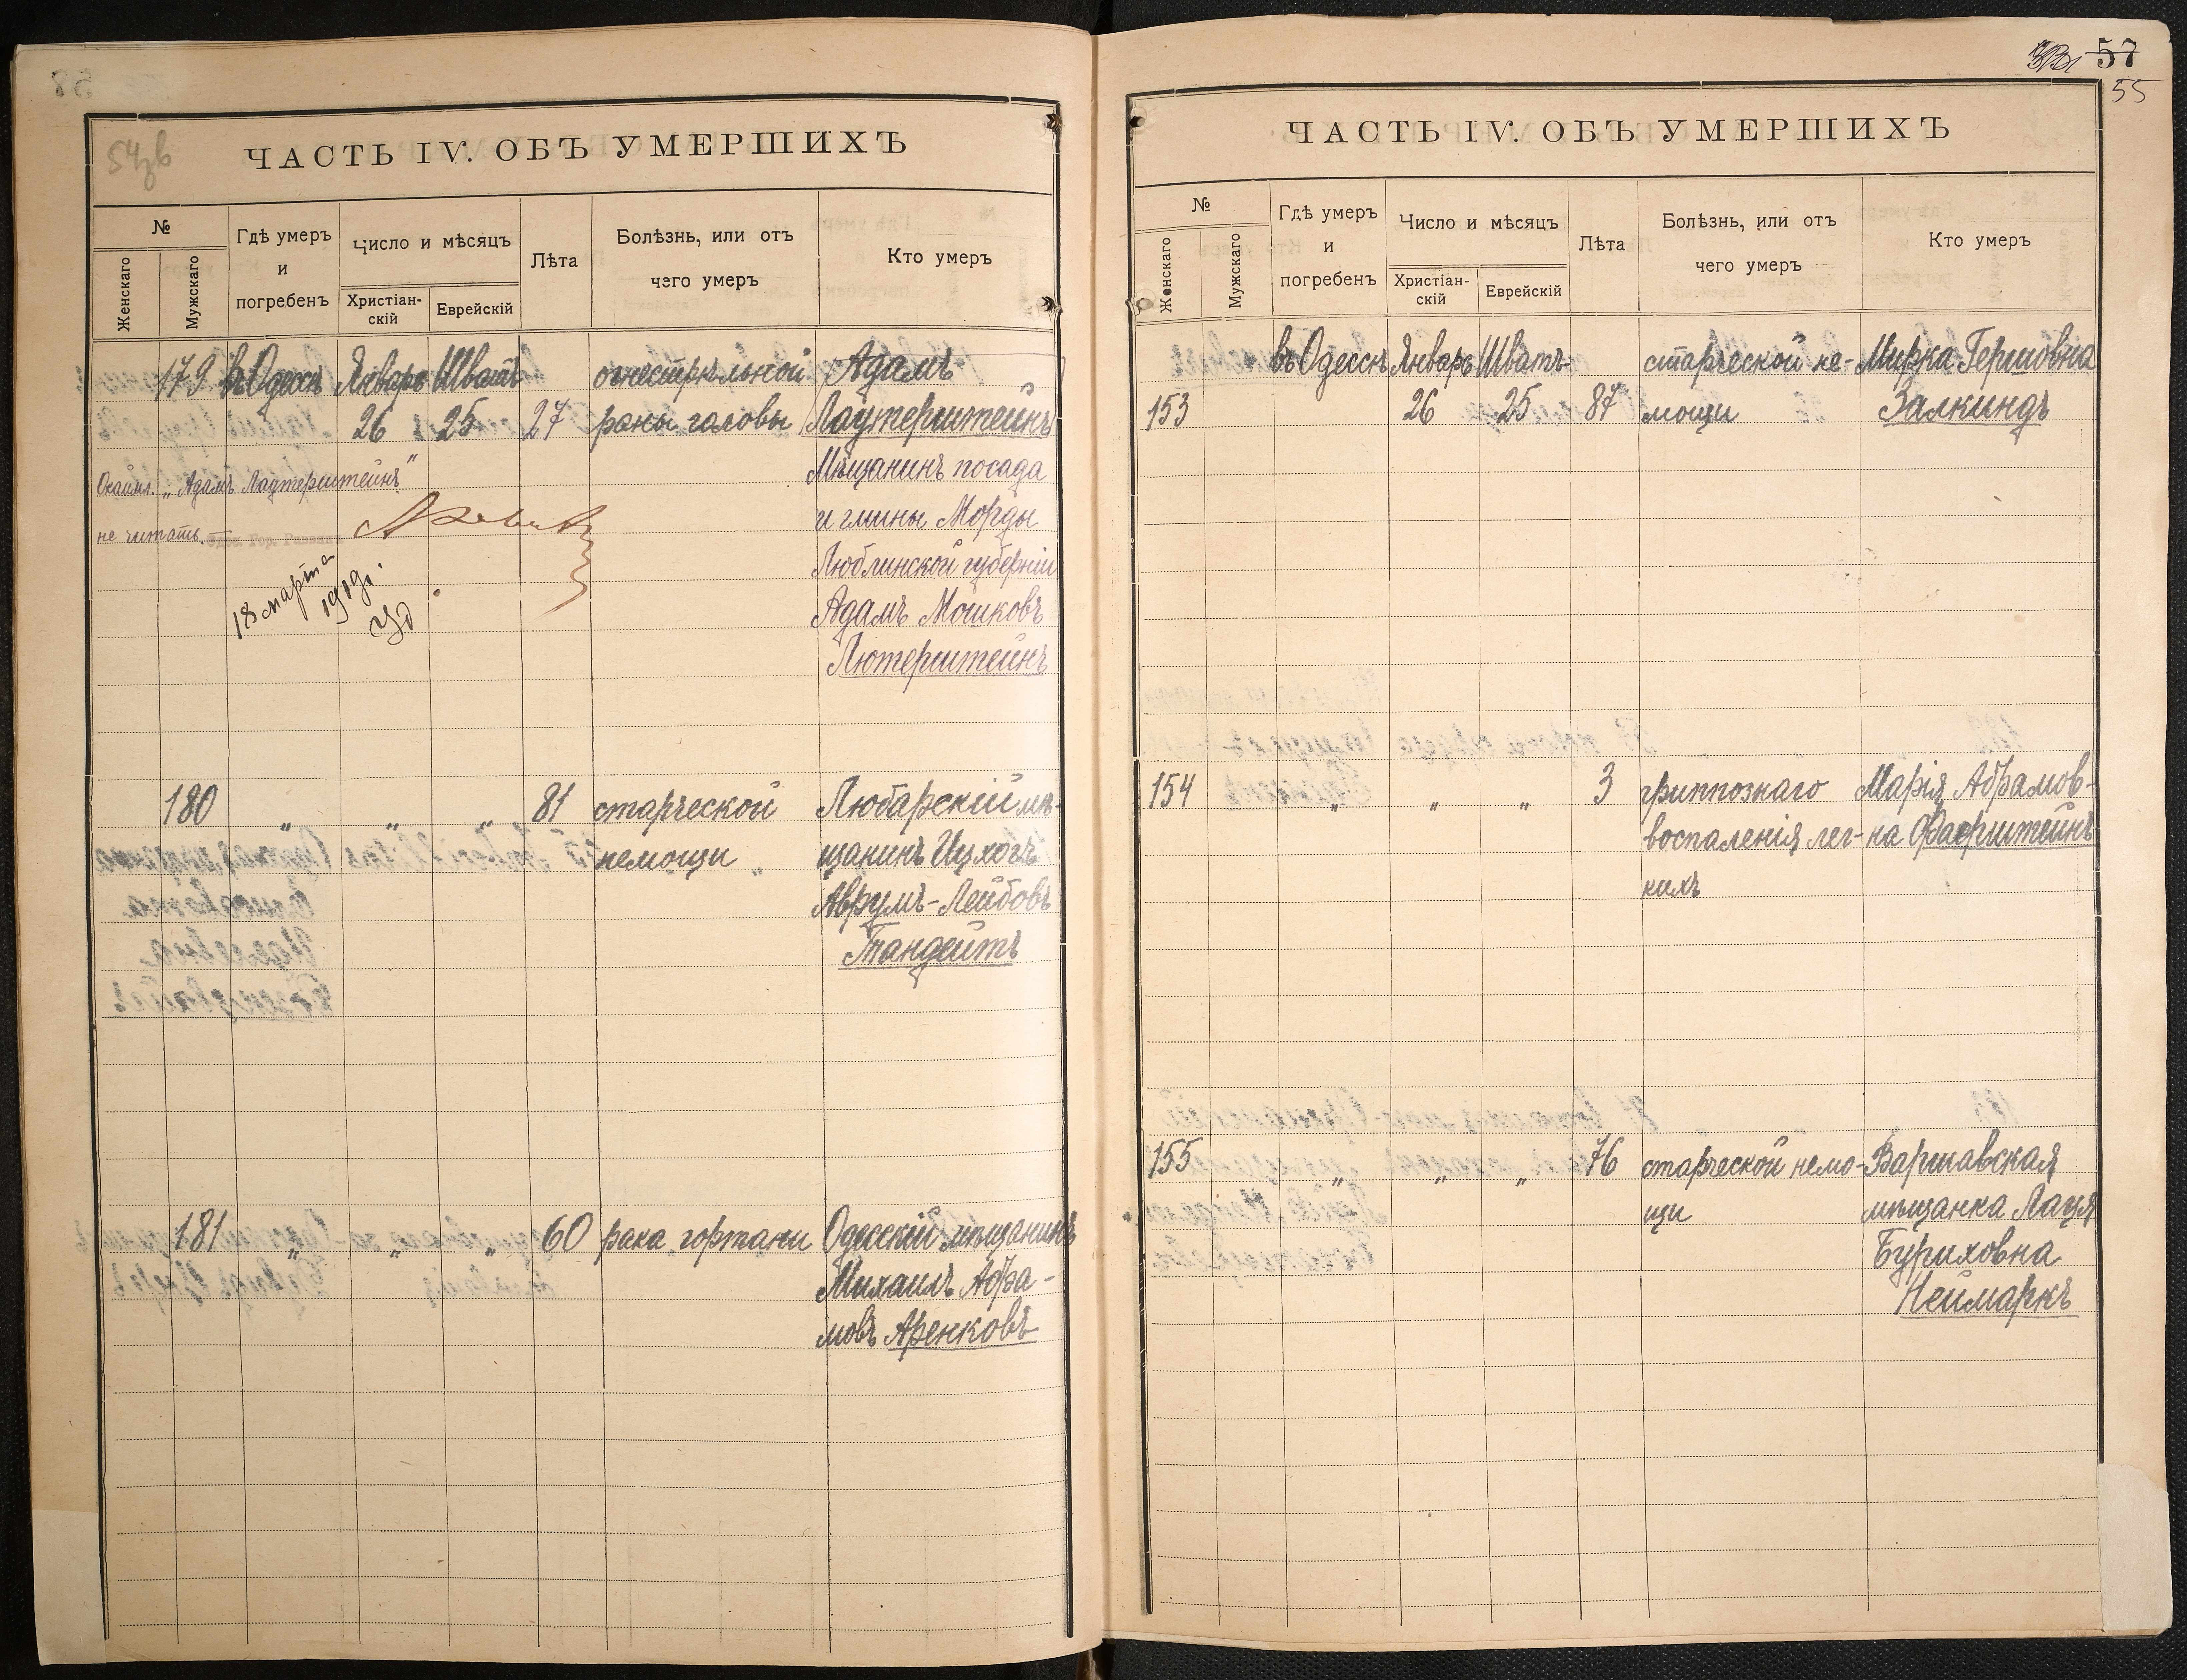 54 зв
ЧАСТЬ IV. ОБЪ УМЕРШИХЪ
№
Женскаго
Мужскаго
Гдѣ умеръ
и
погребенъ
Число и мѣсяцъ
Христіан-
скій
Еврейскій
Лѣта
Болѣзнь, или отъ
чего умеръ
Кто умеръ
179 въ Одессѣ Январь Шватъ огнестрѣльной Адамъ
26 25 27 раны головы Лаутерштейнъ
Мѣщанинъ посада
и гмины Морды
Люблинской губерніи
Адамъ Мошковъ
Лютерштейнъ
"Адамъ Лаутерштейнъ"
не читать.
18 марта
1919г.
180 " " " 81 старческой Любарскій мѣ-
немощи щанинъ Ицхокъ
Аврумъ-Лейбовъ
Тандейтъ
181 " " " 60 рака гортани Одесскій мѣщанинъ
Михаилъ Абра-
мовъ Аренковъ
57
55
ЧАСТЬ IV. ОБЪ УМЕРШИХЪ
№
Женскаго
Мужскаго
Гдѣ умеръ
и
погребенъ
Число и мѣсяцъ
Христіан-
скій
Еврейскій
Лѣта
Болѣзнь, или отъ
чего умеръ
Кто умеръ
въ Одессѣ Январь Шватъ старческой не- Мирка Гершовна
153 26 25 87 мощи Залкиндъ
154 " " " 3 гриппознаго Марія Абрамов-
воспаленія лег- на Фаерштейнъ
кихъ
155 " " " 76 старческой немо- Варшавская
щи мѣщанка Лаця
Буриховна
Неймаркъ